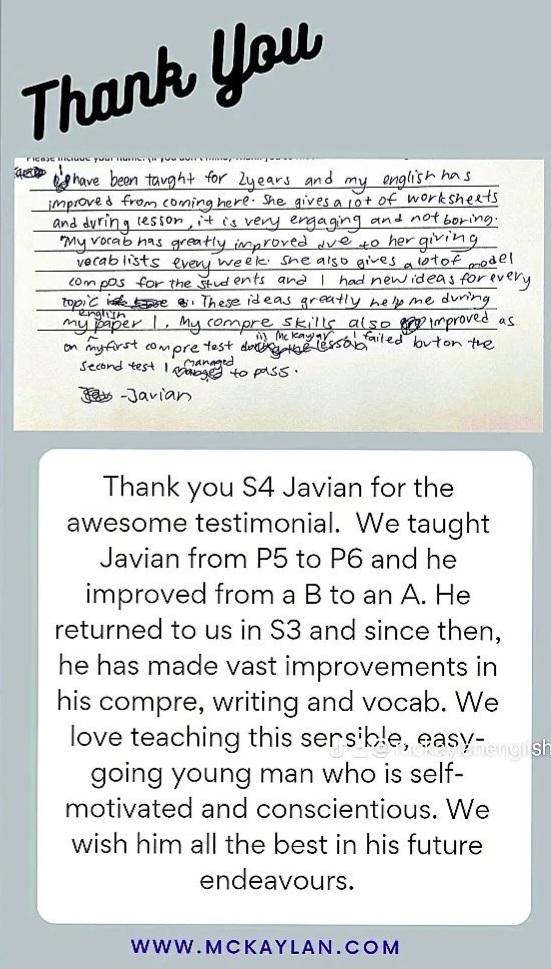 Thank You
I have been taught for 2years and my english has
improved from coming here. She gives a lot of worksheets
and during lesson, it is very engaging and not boring.
My vocab has greatly improved due to her giving
vocab lists every week. She also gives a lot of model
compos for the students and I had new ideas for every
topic. These ideas greatly help me during
english
my paper 1. My compre skills also improved as
in Mckaylan
on my first compre test I failed but on the
managed
second test I to pass.
-Javian
Thank you S4 Javian for the
awesome testimonial. We taught
Javian from P5 to P6 and he
improved from a B to an A. He
returned to us in S3 and since then,
he has made vast improvements in
his compre, writing and vocab. We
love teaching this sensible, easy-
going young man who is self-
motivated and conscientious. We
wish him all the best in his future
endeavours.
@mckaylanenglish
WWW.MCKAYLAN.COM